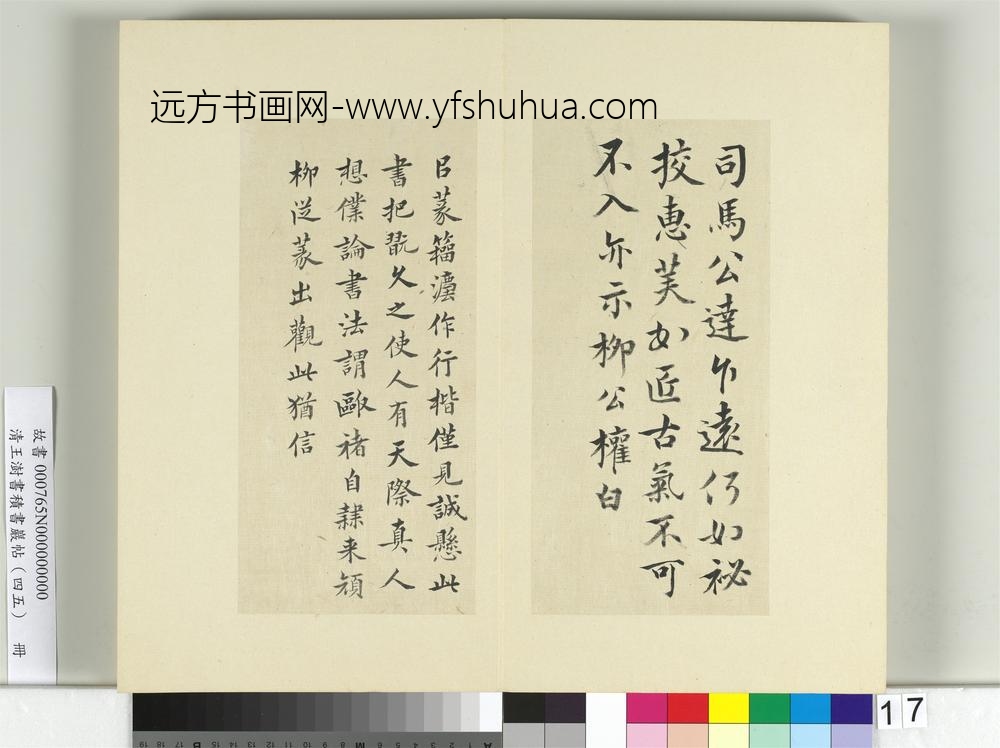 远方书画网-www.yfshuhua.com
司馬公達乍遠仍如祕
挍惠芙如匠古氣不可
不入亦示柳公權白
㠯篆籀灋作行楷僅見誠懸此
書把翫久之使人有天際真人
想僕論書法謂歐褚自隸来顏
柳從篆出觀此猶信
故書 000765N000000000
清王澍書積書巖帖（四五） 冊
17